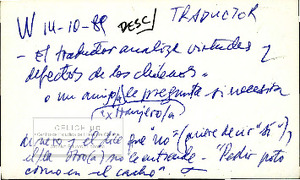 W 14-10-89 DESC/ TRADUCTOR
- El traductor analiza virtudes y
defectos de los chilenos.
o un amigo/a le pregunta si necesita
extranjero/a
dinero y el dice que "no" (quiere decir "si") y
el/la otro(a) no le entiende - "Pedir poto
como en el cache".